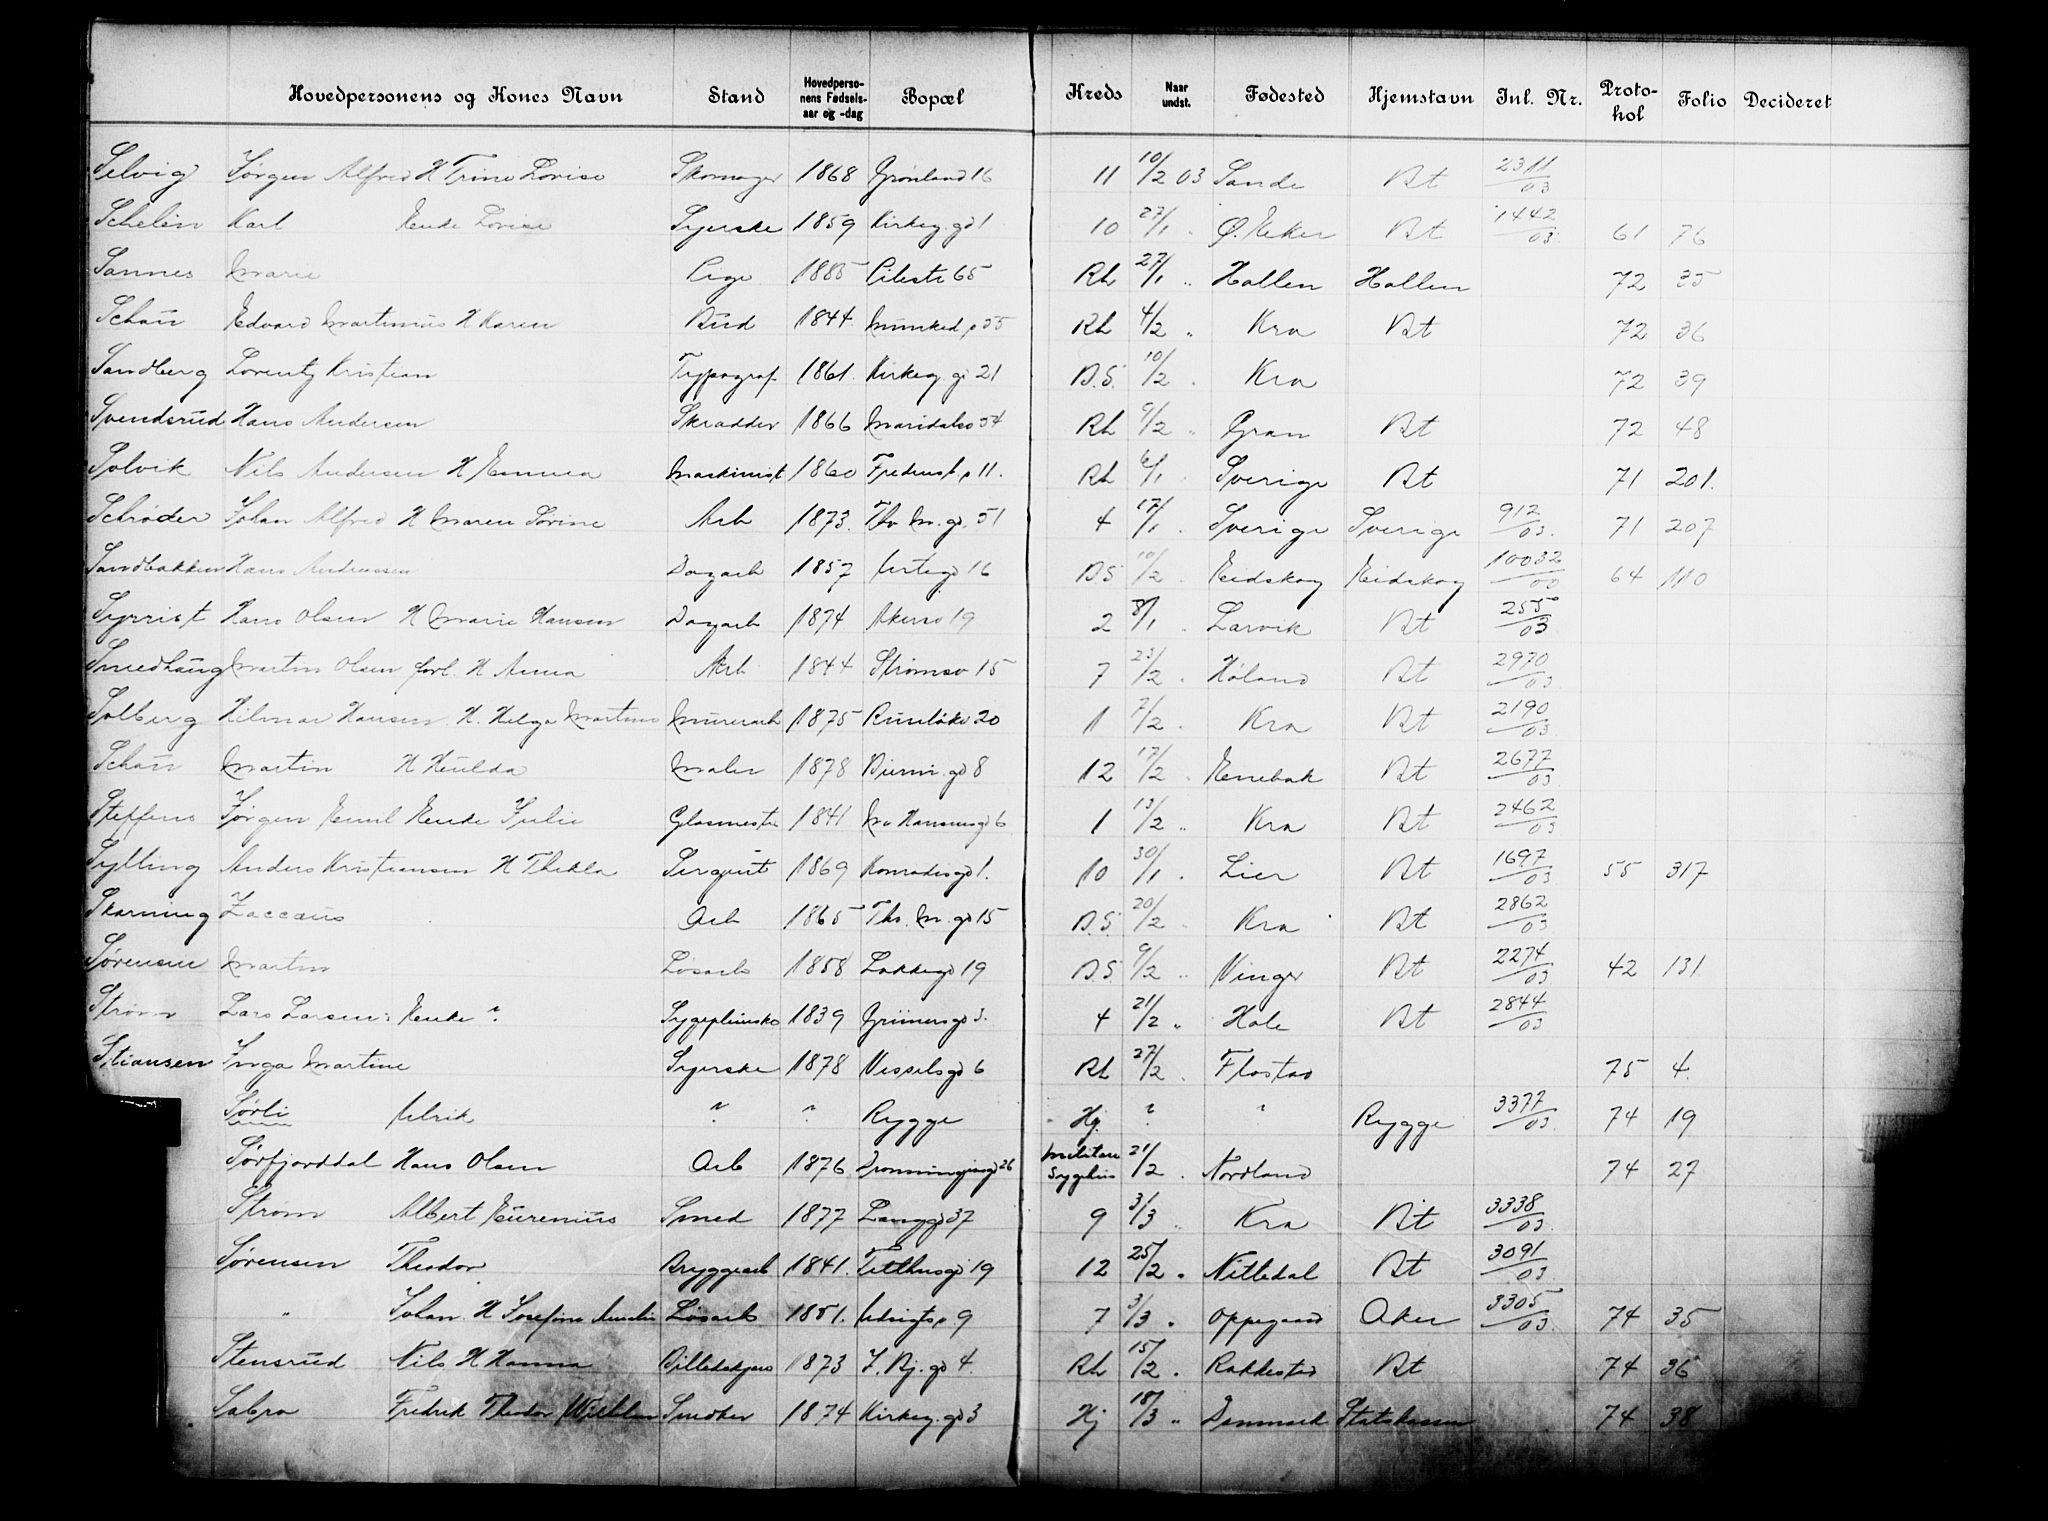 Hovedpersonens og Kones Navn Stand Hovedperso-nens Fødsels-aar og -dag Bopæl Kreds Naar undst. Fødested Hjemstavn Inl. Nr. Proto-kol Folio Decideret
Selvig Jørgen Alfred H Trine Lovise Skomager 1868 Grønland 16 11 10/2 03 Sande Bt 2311/03
Schelin Karl Enke Lovise Syerske 1859 Kirkeg.gd 1 10 27/1 " Ø. Eker Bt 1442/03 61 76
Sannes Marie Pige 1885 Pilestr 65 Rh 27/1 " Hollen Hollen 72 35
Schau Edvard Martinius H Karen Bud 1844 Munked. 35 Rh 4/2 " Kra Bt 72 36
Sandberg Lorentz Kristian Typograf 1861 Kirkeg.gd 21 B.S. 10/2 " Kra 72 39
Svendsrud Hans Andersen Skrædder 1866 Maridalsv 54 Rh 9/2 " Gran Bt 72 48
Solvik Nils Andersen H Emma Maskinist 1860 11. Rh 6/1 " Sverige Bt 71 201.
Schrøder Johan Alfred H Maren Lovine Arb 1873. Thv M. gd. 51 4 17/1 " Sverige Sverige 912/03. 71 207
Sandbakken Hans Andreassen Dagarb 1857 Urtegd 16 B.S 10/2 " Eidskog Eidskog 10032/00 64 110
Syrrist Hans Olsen H Marie Hansen Dagarb 1874 Akersv 19 2 8/1 " Larvik Bt 255/03
Smedhaug Martin Olsen forl. H Anna Arb 1844 Strømsv 15 7 23/2 " Høland Bt 2970/03
Solberg Hilmar Hansen H. Helga Martine Murerarb 1875 Rueløkv 20 1 7/2 " Kra Bt 2190/03
Schau Martin H Hulda Maler 1878 gd 8 12 17/2 " Enebak Bt 2677/03
Steffens Jørgen Emil Enke Julie Glasmester 1841 Mo Hansensgd 6 1 13/2 " Kra Bt 2462/03
Sylling Anders Kristiansen H Thekla Sergeant 1869 Konradisgd 1. 10 30/1 " Lier Bt 1697/03 55 317
Skarning Zaccæus Arb 1865 Thv. M. gd 15 B.S. 20/2 " Kra Bt 2862/03
Sørensen Martin Løsarb 1858 Lakkegd 19 B.S 9/2 " Vinger Bt 2274/03 42 131
Strøm Lars Larsen: Enke ? 1839 Grünersgd 3. 4 21/2 " Hole Bt 2844/03
Stiansen Inga Martine Syerske 1878 Vesselsgd 6 Rh 27/2 " Flostad 75 4.
Sørli Ulrik ? ? Rygge Hj. ? ? Rygge 3377/03 74 19
Sørfjorddal Hans Olsen Arb 1876 Dronningensgd 26 Militære Sygehus 21/2 " Nordland 74 27
Strøm Albert Eurenius Smed 1877 Langgd 37 9 3/3 " Kra Bt 3338/03
Sørensen Theodor Bryggearb 1841. Tetthusgd 19 12 25/2 " Nittedal Bt 3091/03
" Johan H Josefine Amalie Løsarb 1851. 9 7 3/3 " Oppegaard Aker 3305/03 74 35
Stensrud Nils H Hanna Billedskjærer 1873 J. Bj. gd 4. Rh 15/2 " Rakkestad Bt 74 36
Sabra Fredrik Theodor Wilhelm Snedker 1874 Kirkeg.gd 3 Hj 18/3 " Danmark Statskassen 74 38